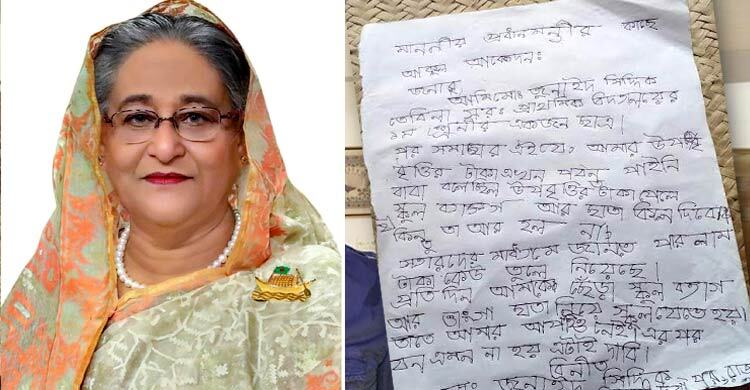 মাননীয় প্রধানমন্ত্রীর কাছে
আকুল আবেদন:
জনাব
আমি মো: জুনাইদ সিদ্দিক
সর: প্রাথমিক বিদ্যালয়ের
১ম শ্রেনীর একজন ছাত্র।
পর সমাচার এইযে: আমার উপবৃ
ত্তির টাকা এখন পর্যন্ত পাইনি
বাবা বলেছিল উপবৃত্তির টাকা পেলে
স্কুল ব্যাগ আর ছাতা কিনে দিবে
কিন্তু তা আর হল না।
মাধ্যমে জানতে পারলাম
টাকা কেউ তুলে নিয়েছে।
প্রতি দিন আমাকে ছেড়া স্কুল ব্যাগ
আর ভাংগা ছাতা নিয়ে স্কুলে যেতে হয়।
তাতে আমার এর পর
এমন না হয় এটাই দাবি।
বিনীত
সিদ্দিক